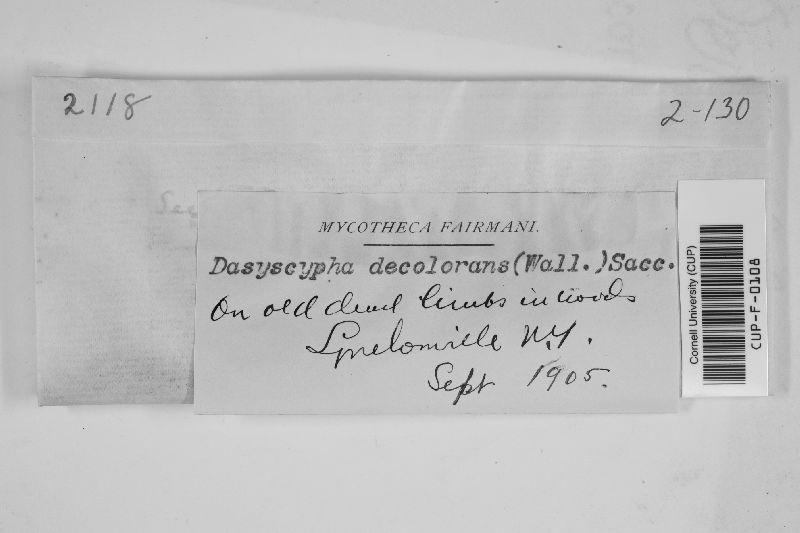 2118
2-130
See
MYCOTHECA FAIRMANI.
Dasyscypha decolorans (Wall.) Sacc.
On old dead limbs in woods
Lyndonville N.Y.
Sept 1905.
Cornell University (CUP)
CUP-F-0108